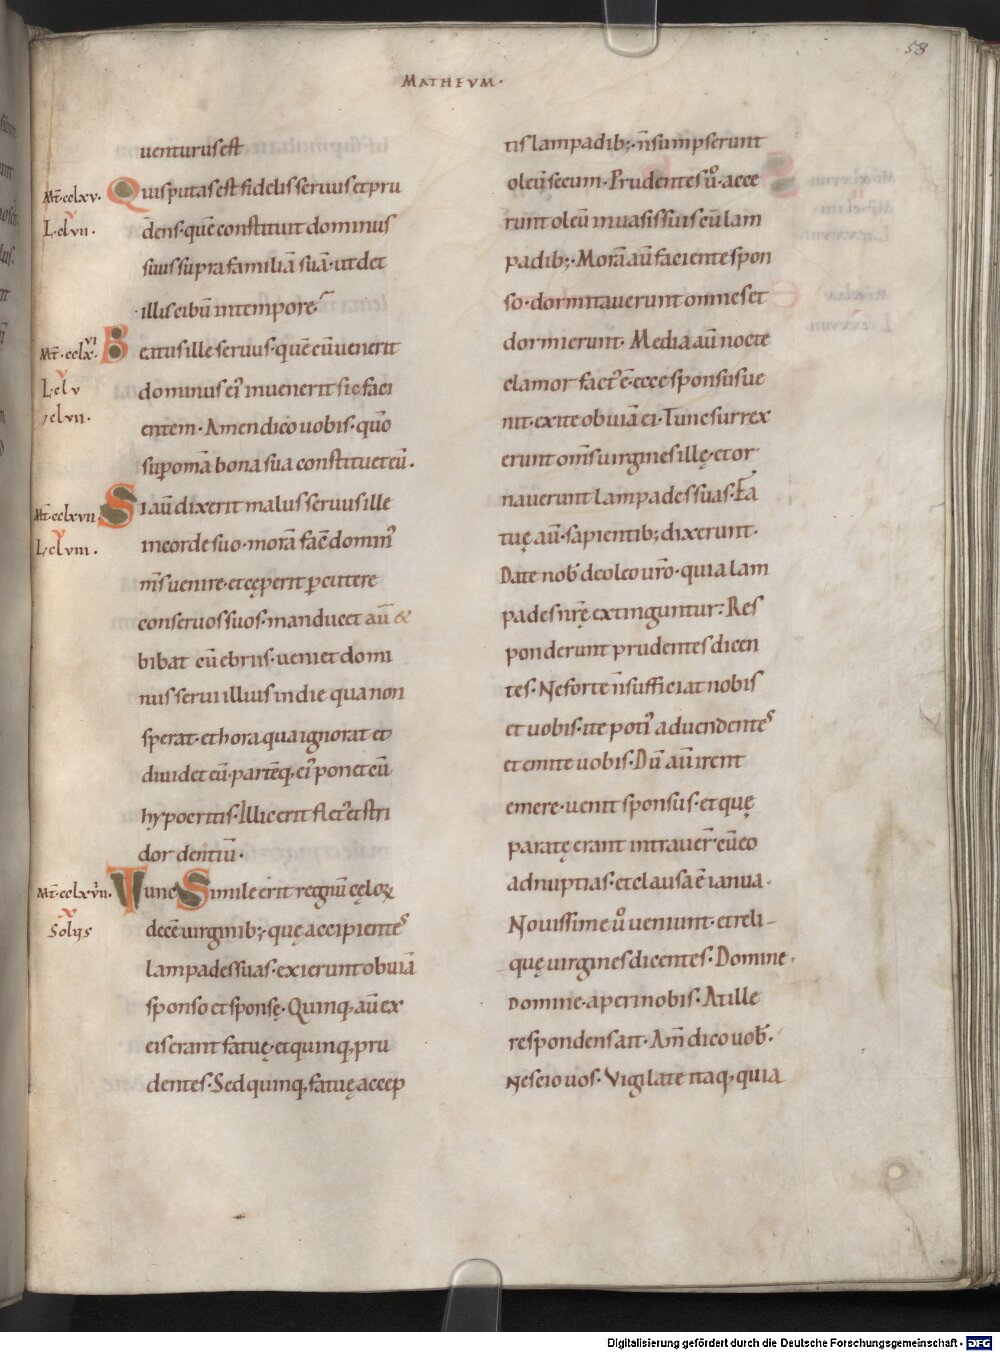 58
MATHEVM·
uenturus est
Mt̄·cclxv· Quis putas est fidelis seruus et pru
L·clvii· dens·quē constituit dominus
suus supra familiā suā·ut det
illis cibū in tempore·
Mt̄·cclxvi· Beatus ille seruus·quē cū uenerit
L·clv dominus ei᷒ inuenerit sic faci
clvii· entem·Amen dico uobis·quō
sup omā bona sua constituet eū·
Mt̄·cclxvii· Si aū dixerit malus seruus ille
L·clviii· in corde suo·morā facē domin᷒
m̄s uenire·et cęperit ꝑcutere
conseruos suos·manducet aū &
bibat cū ebriis·ueniet domi
nus serui illius in die qua non
sperat·et hora qua ignorat et
diuidet eū·partēq; ei᷒ ponet cū
hypocritis·Illic erit flet᷒ et stri
dor dentiū·
Mt̄·cclxviii· Tunc Simile erit regnū cęloꝝ
x
Soli᷒ decē uirginib;·quę accipientes
lampades suas·exierunt obuiā
sponso et sponsę·Quinq; aū ex
eis erant fatuę·et quinq; pru
dentes·Sed quinq; fatuę accep
tis lampadib;·n̄ sumpserunt
oleū secum·Prudentes u᷒o·acce
runt oleū in uasis suis cū lam
padib;·Morā aū faciente spon
so·dormitauerunt omnes et
dormierunt·Media aū nocte
clamor fact᷒ ē·ecce sponsus ue
nit·exite obuiā ei·Tunc surrex
erunt om̄s uirgines illę·et or
nauerunt lampades suas·Fa
tuę aū·sapientib; dixerunt·
Date nob̄ de oleo ur̄o·quia lam
pades nr̄ę extinguntur·Res
ponderunt prudentes dicen
tes·Ne forte n̄ sufficiat nobis
et uobis·ite poti᷒ ad uendentes
et emite uobis·Dū aū irent
emere·uenit sponsus·et quę
paratę erant intrauer̄ cū eo
ad nuptias·et clausa ē ianua·
Nouissime u᷒o ueniunt·et reli-
quę uirgines dicentes·Domine·
Domine·aperi nobis·At ille
respondens ait·Am̄ dico uob̄·
Nescio uos·Vigilate itaq; quia
Digitalisierung gefördert durch die Deutsche Forschungsgemeinschaft - DFG